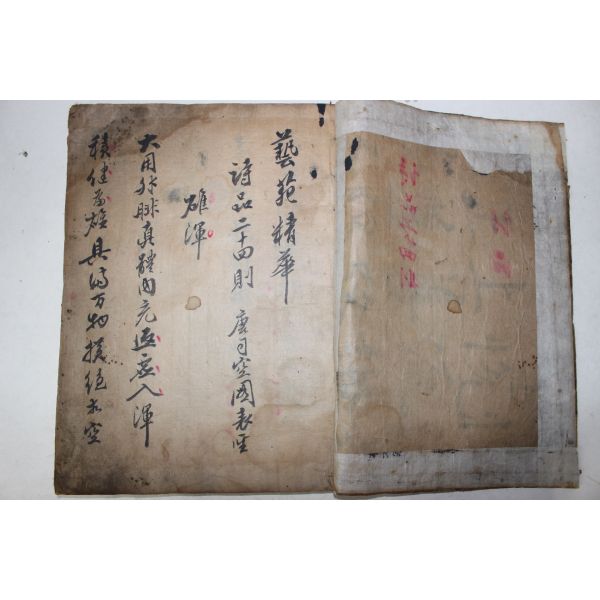 藝苑精華
詩品二十四則 唐司空圖表聖
雄渾
大用外腓真體內充返虛入渾
積健為雄具備万物橫絕太空
詩品